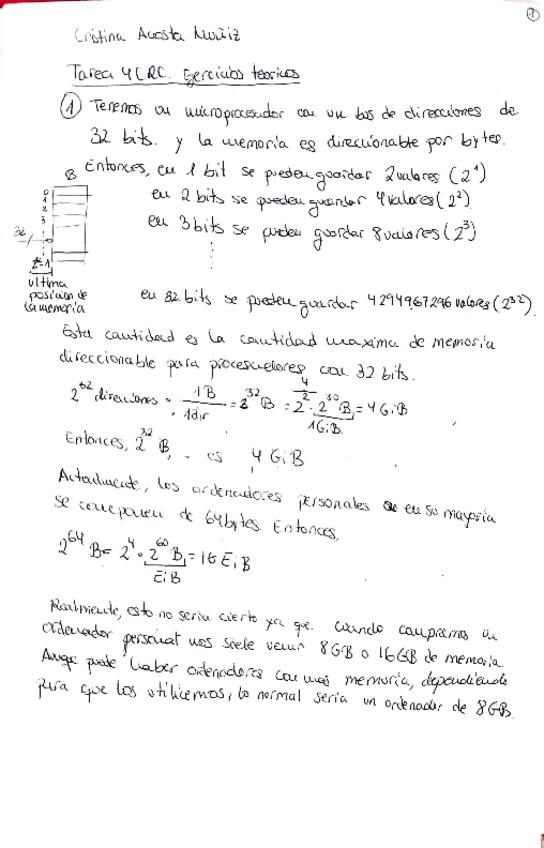 1
Cristina Acosta Muñiz
Tarea 4 CRC. Ejercicios teoricos
1 Tenemos un microprocesador con un bus de direcciones de
32 bits. y la memoria es direccionable por bytes.
Entonces, en 1 bit se pueden guardar 2 valores (2^1)
en 2 bits se pueden guardar 4 valores (2^2)
en 3 bits se pueden guardar 8 valores (2^3)
8
0
1
2
3
32
ultima
posicion de
la memoria
en 32 bits se pueden guardar 4294967296 valores (2^32).
Esta cantidad es la cantidad maxima de memoria
direccionable para procesadores con 32 bits.
2^32 direcciones · 1B / 1dir = 2^32 B = 2^2 · 2^30 B = 4 GiB
4
1GiB
Entonces, 2^32 B, es 4 GiB
Actualmente, los ordenadores personales en su mayoria
se componen de 64 bytes. Entonces,
2^64 B = 2^4 · 2^60 B = 16 EiB
EiB
Realmente, esto no seria cierto ya que cuando compramos un
ordenador personal nos suele venir 8GB o 16GB de memoria.
puede haber ordenadores con mas memoria, dependiendo
para que los utilicemos, lo normal seria un ordenador de 8GB.